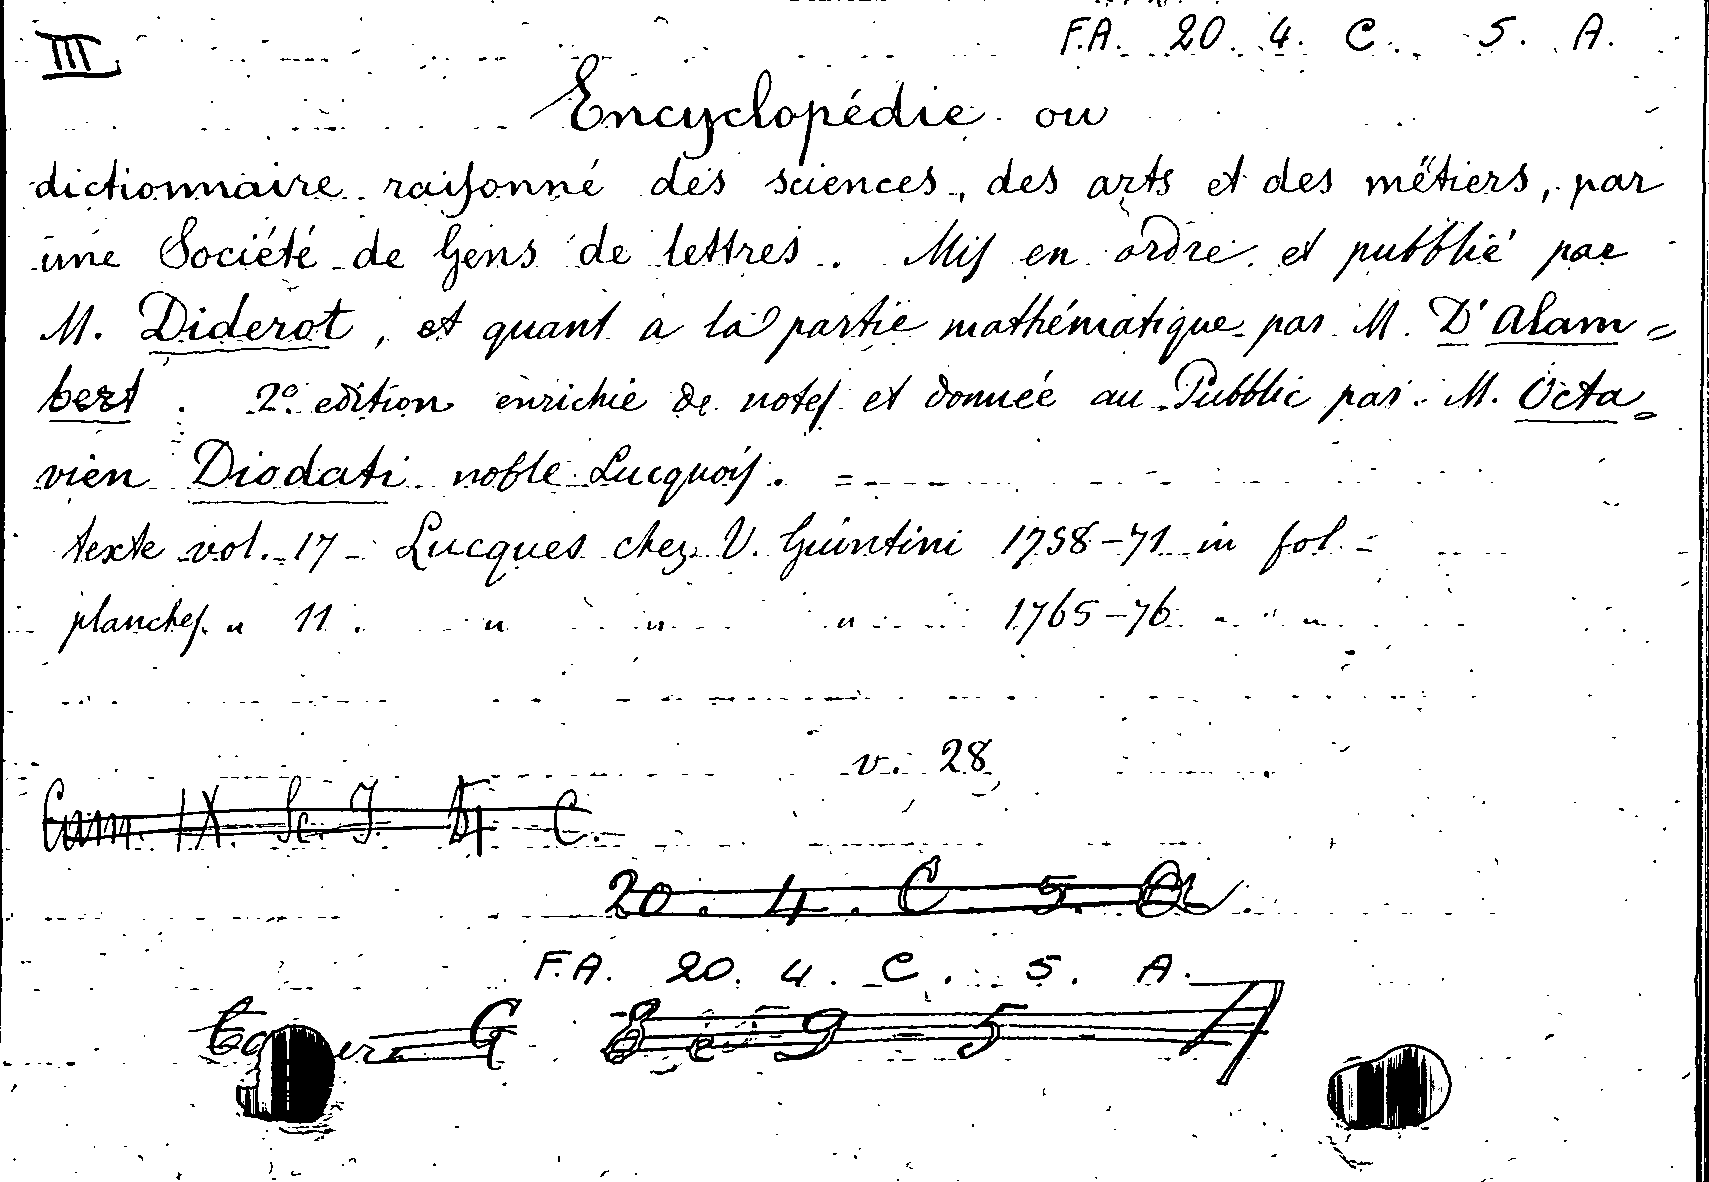 III F.A. 20. 4. C. 5. A.
Encyclopédie ou
dictionnaire raisonné des sciences, des arts et des mëtiers, par
une Société de Gens de lettres. Mis en ordre et pubblié par
M. Diderot, et quant a la partie mathématique par M. D'Alam=
bert. 2e edition enrichie de notes et donnée au Pubblic par M. Octa=
vien Diodati noble Lucquois. =
texte vol. 17 - Lucques chez V. Guintini 1758-71 in fol. =
planches " 11. " " " 1765-76 " "
v. 28
Cam. IX. Sc. I. 4 C.
20. 4. C 5. A.
F.A. 20. 4. C. 5. A.
G 8 e 9 - 5 A